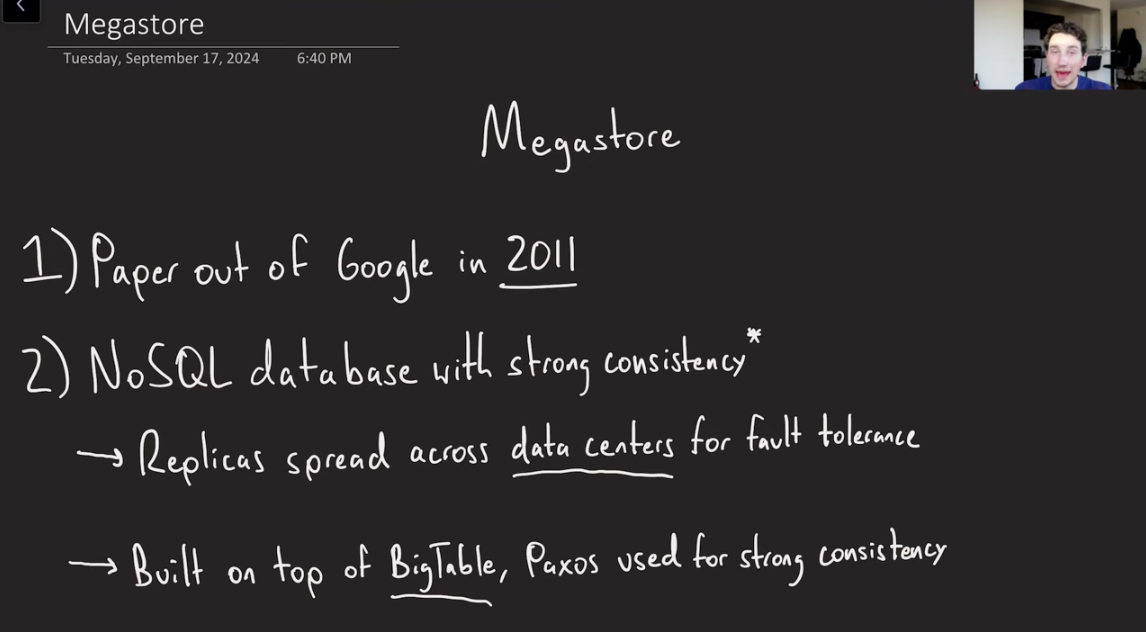 Megastore
Tuesday, September 17, 2024 6:40 PM
Megastore
1) Paper out of Google in 2011
2) NoSQL database with strong consistency*
→ Replicas spread across data centers for fault tolerance
→ Built on top of BigTable, Paxos used for strong consistency